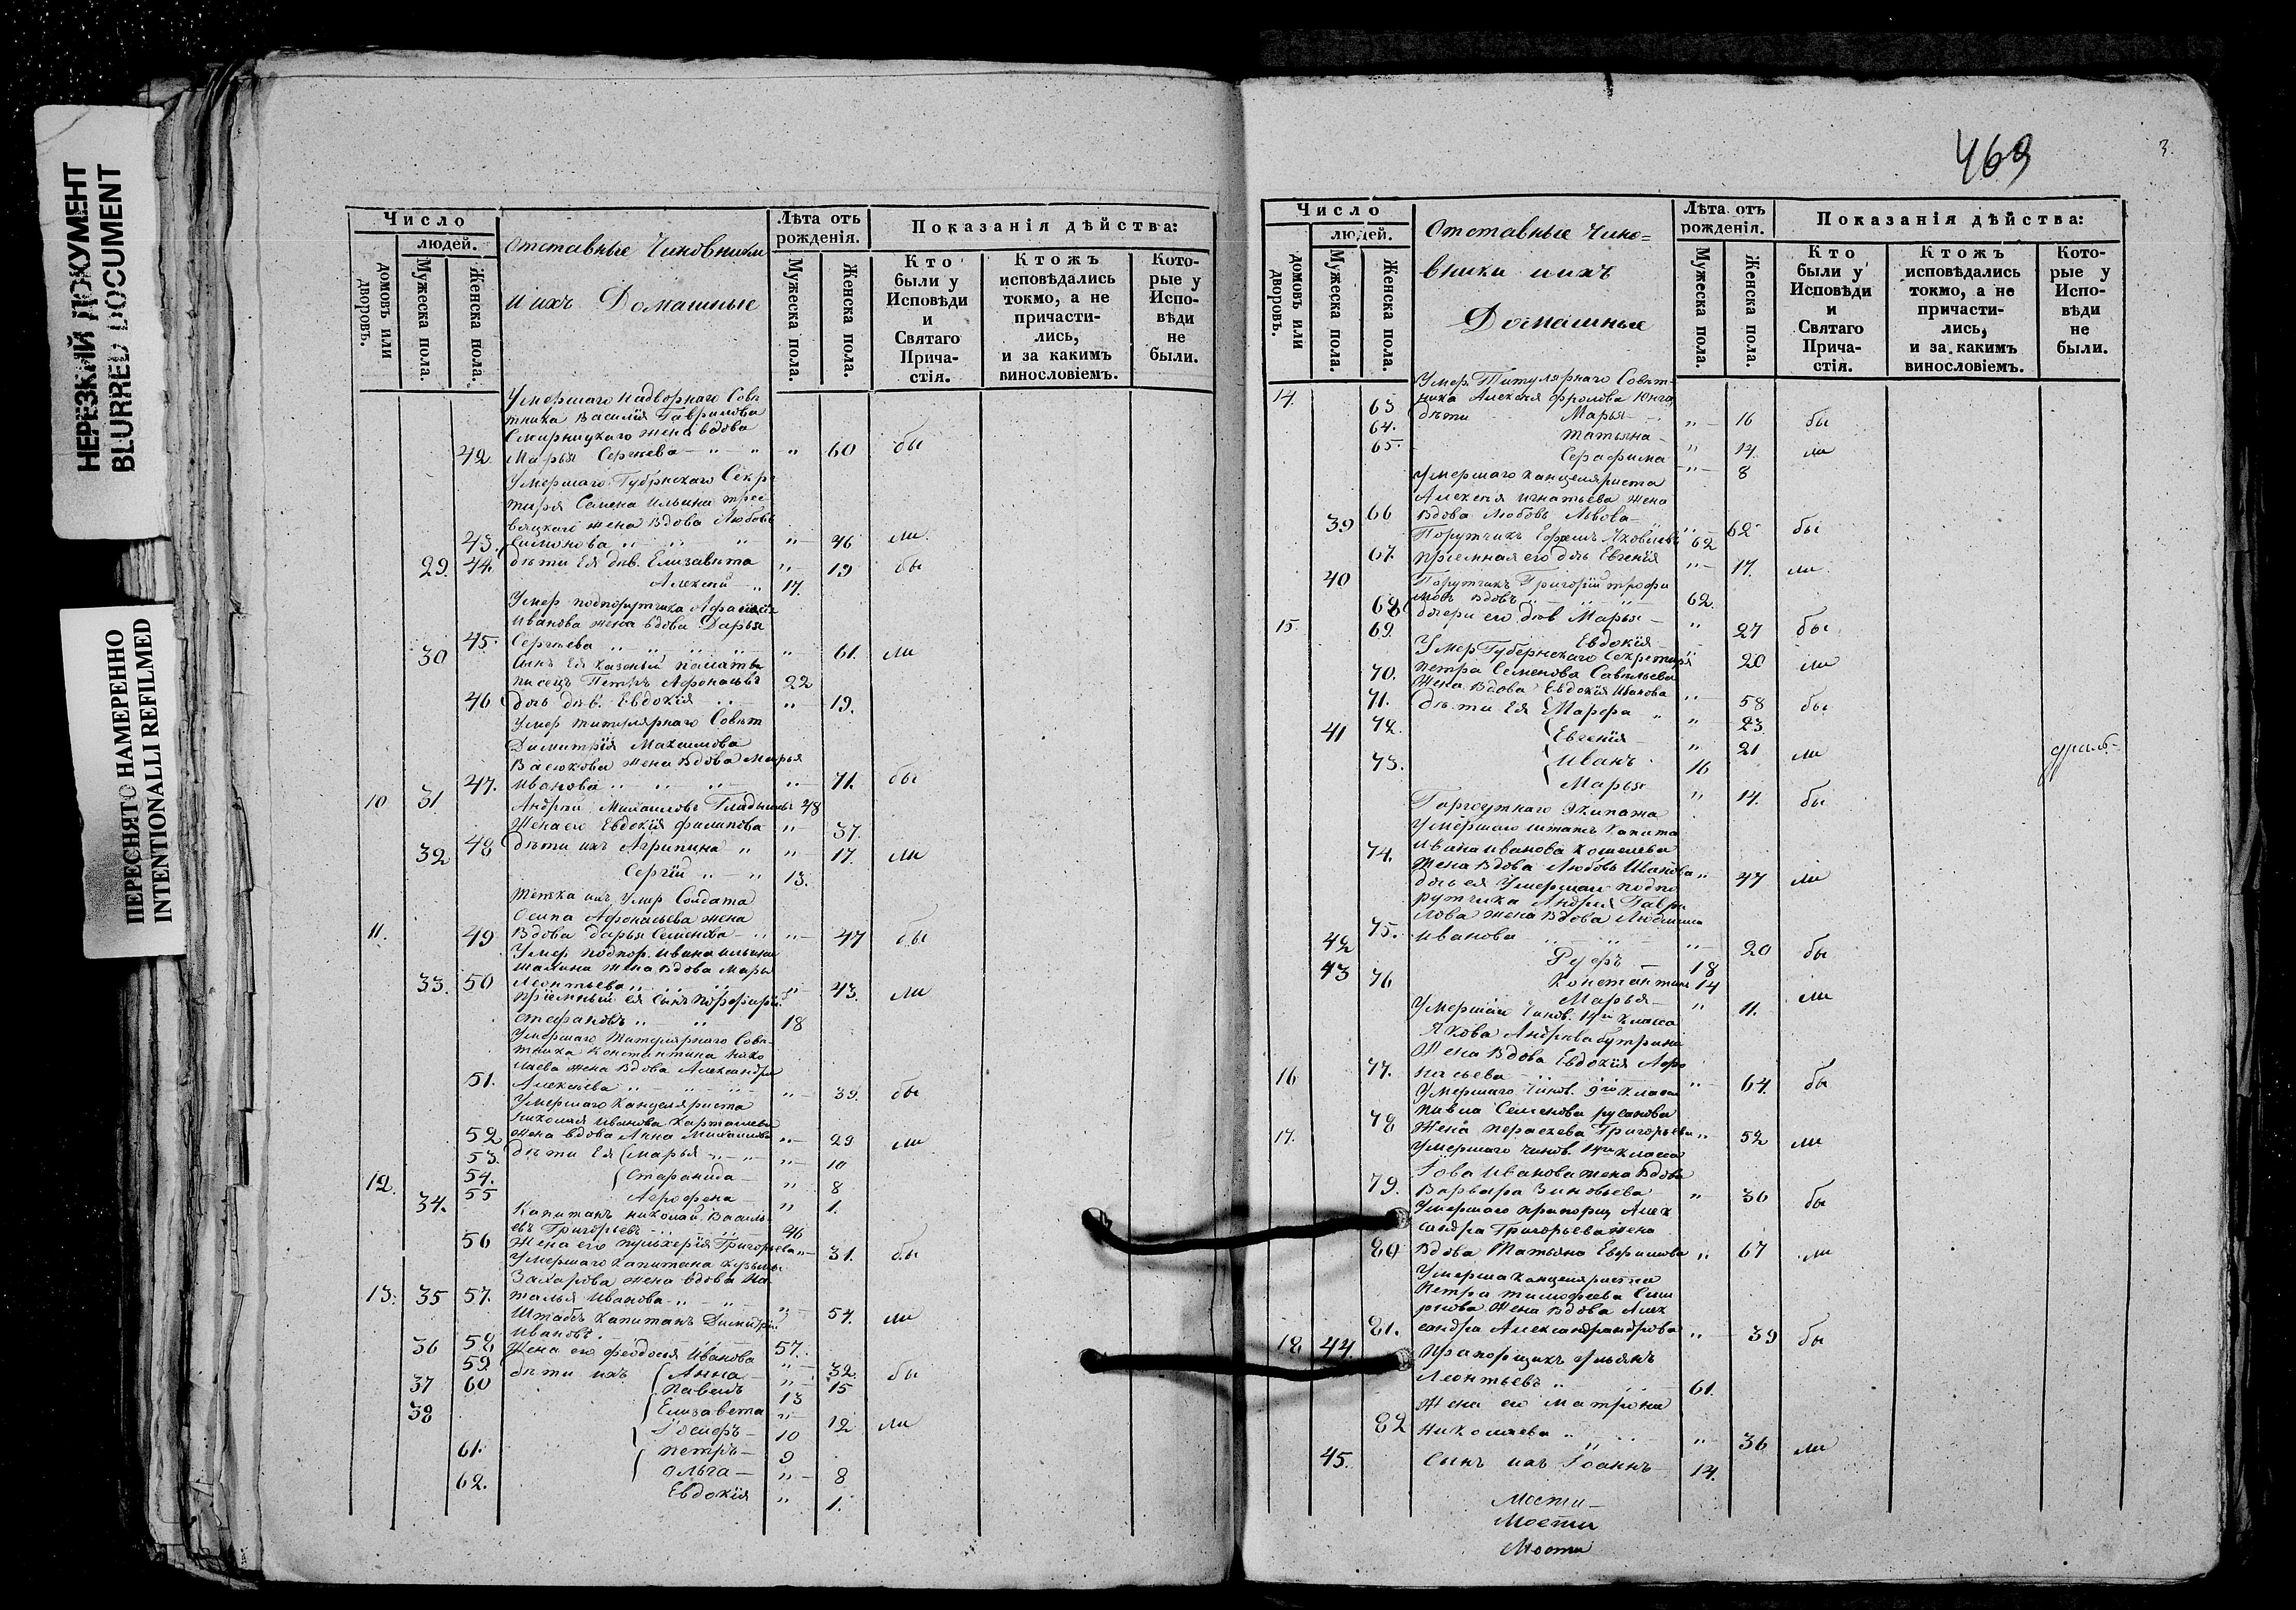 НЕРЕЗКИЙ ДОКУМЕНТ
BLURRED DOCUMENT
ПЕРЕСНЯТО НАМЕРЕННО
INTENTIONALLI REFILMED
Число
домовъ или дворовъ.
людей.
Мужеска пола.
Женска пола.
Отставные Чиновники
и ихъ Домашные
Лѣта отъ рожденія.
Мужеска пола.
Женска пола.
Показанія дѣйства:
Кто были у Исповѣди и Святаго Прича-стія.
Ктожъ исповѣдались токмо, а не причасти-лись, и за какимъ винословіемъ.
Кото-рые у Испо-вѣди не были.
Умершаго Надворнаго Совѣ
тника Василія Гаврилова
жена вдова
42 Марья Сергѣева " 60 бы
Умершаго Губернскаго Секре
таря Семена Ильина
жена вдова Любовь
43. Симонова " 46 ли
29. 44. дѣти Ея дѣв. Елизавета " 19 бы
Алексѣй 17.
Умер подпорутчика
Иванова жена вдова Дарья
45. Сергѣева " 61. ли
30 Сынъ Ея казеной палаты
писецъ Петръ Афонасьевъ 22
46 дочь дѣв. Евдокія " 19.
Умер титулярнаго Совѣт
Димитрія
жена вдова Марья
47. Иванова " 71. бы
10 31 Андрей Михаиловъ 48
Жена его Евдокія Филипова " 37.
32 48 дѣти ихъ Агрипина " 17. ли
Сергій 13.
тетка ихъ Умер Солдата
Осипа Афонасьева жена
11. 49 Вдова дарья Семенова " 47 бы
Умер подпор. Ивана Ильина
жена вдова Марья
33. 50 Леонтьева " 43. ли
пріемный ея сынъ Порфирій
Стефановъ 18
Умершаго Титулярнаго Совѣ-
тника Константина Нико
лаева жена вдова Александра
51. Алексѣева " 39. бы
Умершаго Канцеляриста
Николая Иванова
52 жена вдова Анна Михаилова " 29 ли
53. дѣти Ея Марья " 10
54. Стефанида " 8
12. 55 Агрофена " 1.
34. Капитанъ Николай Василь
евъ Григорьевъ 46
56 Жена его Пульхерія Григорьева " 31. бы
Умершаго Капитана Кузьмы
Захарова жена вдова На
57. талья Иванова " 54. ли
13. 35 Штабсъ Капитанъ Димитрій
Ивановъ 57.
58 Жена его Феодосія Иванова " 32. бы
59. дѣти ихъ Анна " 15
36 Павелъ 13
60 Елизавета " 12 ли
37 Іосифъ 10
38 Петръ 9
61. Ольга " 8
62. Евдокія " 1.
469
3.
Число
домовъ или дворовъ.
людей.
Мужеска пола.
Женска пола.
Отставные Чино=
вники и ихъ
Домашные
Лѣта отъ рожденія.
Мужеска пола.
Женска пола.
Показанія дѣйства:
Кто были у Исповѣди и Святаго Прича-стія.
Ктожъ исповѣдались токмо, а не причасти-лись, и за какимъ винословіемъ.
Кото-рые у Испо-вѣди не были.
14. Умер. Титулярнаго Совѣт-
ника Алексѣя Фролова
63 дѣти Марья " 16 бы
64. Татьяна " 14. ли
65. Серафима " 8
Умершаго Канцеляриста
Алексѣя Игнатьева жена
66 Вдова Любовь Львова " 62 бы
39 Порутчикъ Ефремъ Яковлевъ 62
67. пріемная его дочь Евгенія " 17. ли
40 Порутчикъ Григорій Трофи
мовъ вдовъ 62.
68 дочери его дѣв Марья " 27 бы
69. Евдокія 20 ли
15. Умер Губернскаго Секретаря
Петра Семенова Савельева
70. Жена вдова Евдокія Иванова " 58 бы
71. дѣти Ея Марфа " 23.
72. Евгенія " 21 ли
41 Иванъ 16
73. Марья " 14. бы
экипажа
Умершаго штапсъ капита
Ивана Иванова Кошелева
74. Жена вдова Любовь Иванова " 47 ли
дочь ея Умершаго подпо
рутчика Андрея Гаври
лова жена вдова
75. Иванова " 20 бы
42 18
43 Константинъ 14
76 Марья " 11. ли
Умершаго Чинов. 14го класса
Якова Андреева
Жена вдова Евдокія Афо
77. насьева " 64. бы
16 Умершаго Чинов. 9го класса
Павла Семенова Русанова
78 Жена Перасковa Григорьева " 52 ли
17. Умершаго чинов. 14го класса
Іова Иванова жена вдова
79. Варвара Зиновьева " 36 бы
Умершаго прапорщ Алек
сандра Григорьева жена
80 Вдова Татьяна Ефимова " 67 ли
Умерша Канцеляриста
Петра Тимофеева Сми
рнова Жена вдова Алек
81. сандра Александрова " 39 бы
18 44. Прапорщикъ Ульянъ
Леонтьевъ 61.
Жена его Матрона
82 Николаева " 36 ли
45. Сынъ ихъ Іоаннъ 14.
Мости
Мости
Мости